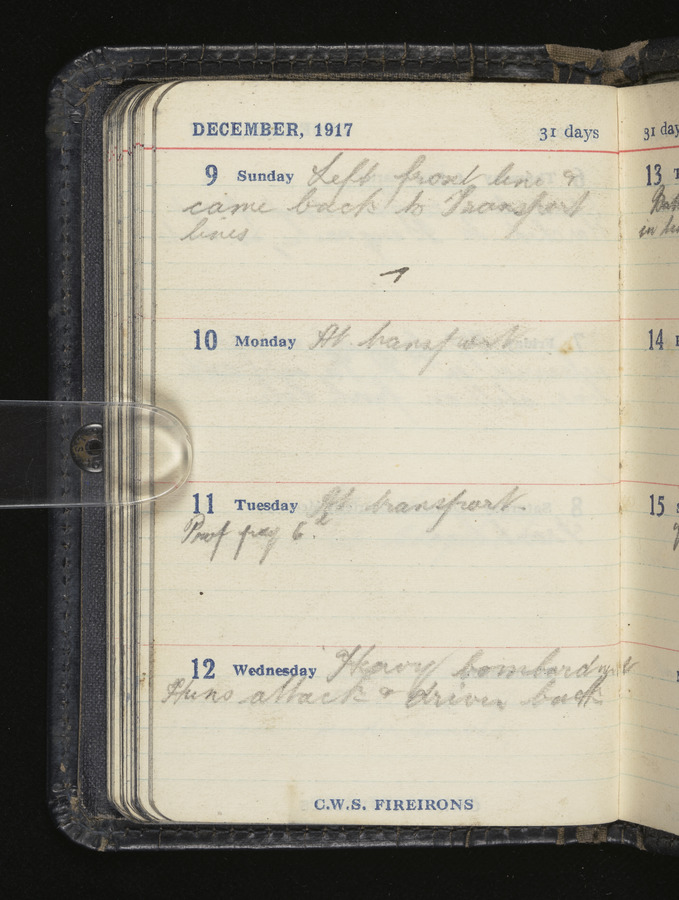 DECEMBER, 1917 31 days
9 Sunday Left front line &
came back to Transport
lines
10 Monday At transport
11 Tuesday At transport
Prof pay 6d.
12 Wednesday Heavy bombardment
Huns attack & driven back
C.W.S. FIREIRONS
31 day
13
in
14
15